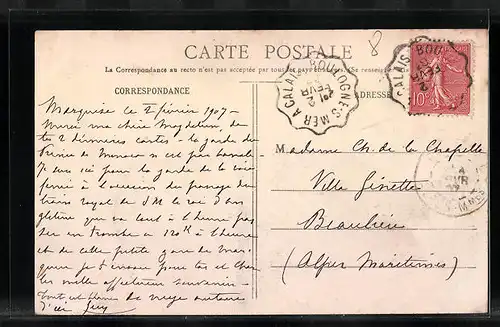 8
CARTE POSTALE
La Correspondance au recto n'est pas acceptée par tous les pays
CORRESPONDANCE
ADRESSE
CALAIS A BOULOGNE S MER
2
FEVR
CALAIS
BOU
2
FEVR
10c
Marquise le 2 février 1907 -
Merci ma chère
tes 2 dernières cartes - la garde du
Prince de Monaco n'est pas banale
ici pour la garde de la voie
ferrée à l'occasion du passage du
train royal de S M le roi d'an
gleterre qui va tout à l'heure pas
ser en trombe à 120 K à l'heure
et de cette petite gare de Mar
quise je t'envoie pour toi et Char
les mille affectueux souvenirs -
Tout est blanc de neige autour
d'ici Guy
Madame Ch. de la Chapelle
Villa Ginette
Beaulieu
(Alpes Maritimes)